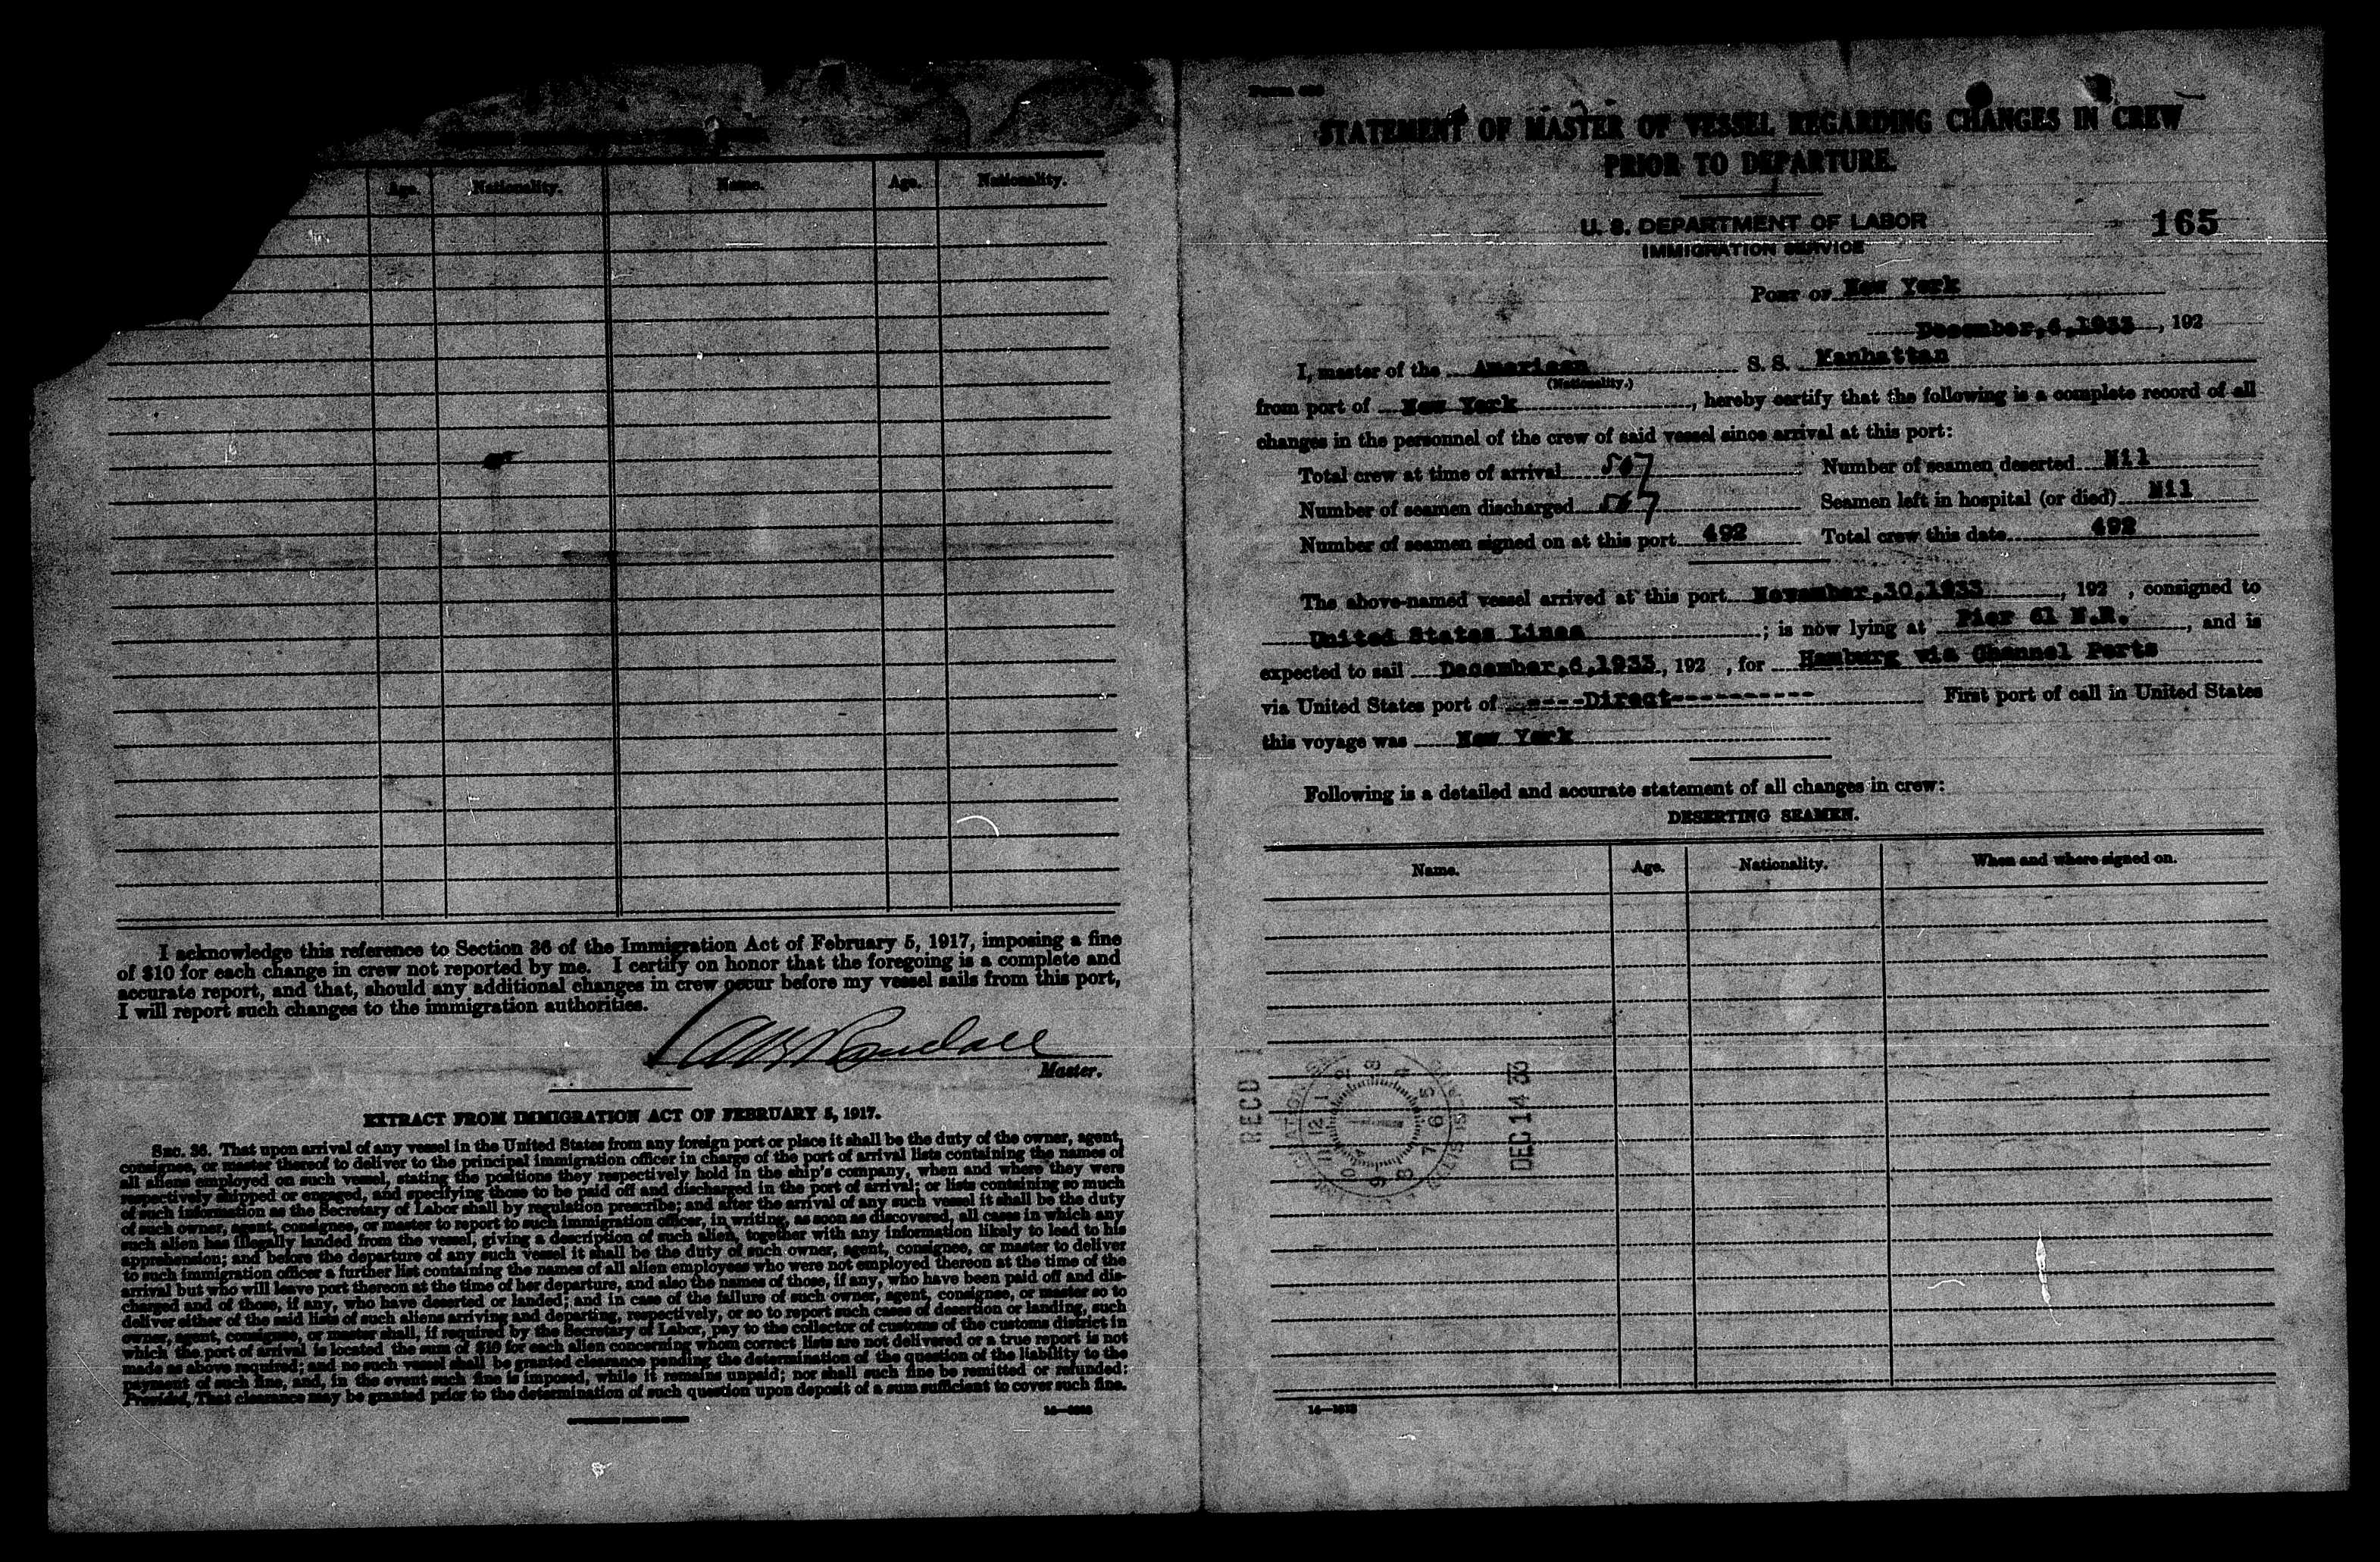 Age. Nationality. Name. Age. Nationality.
I acknowledge this reference to Section 36 of the Immigration Act of February 5, 1917, imposing a fine
of $10 for each change in crew not reported by me. I certify on honor that the foregoing is a complete and
accurate report, and that, should any additional changes in crew occur before my vessel sails from this port,
I will report such changes to the immigration authorities.
Randall
Master.
EXTRACT FROM IMMIGRATION ACT OF FEBRUARY 5, 1917.
SEC. 36. That upon arrival of any vessel in the United States from any foreign port or place it shall be the duty of the owner, agent,
consignee, or master thereof to deliver to the principal immigration officer in charge of the port of arrival lists containing the names of
all aliens employed on such vessel, stating the positions they respectively hold in the ship's company, when and where they were
respectively shipped or engaged, and specifying those to be paid off and discharged in the port of arrival; or lists containing so much
of such information as the Secretary of Labor shall by regulation prescribe; and after the arrival of any such vessel it shall be the duty
of such owner, agent, consignee, or master to report to such immigration officer, in writing, as soon as discovered, all cases in which any
such alien has illegally landed from the vessel, giving a description of such alien, together with any information likely to lead to his
apprehension; and before the departure of any such vessel it shall be the duty of such owner, agent, consignee, or master to deliver
to such immigration officer a further list containing the names of all alien employees who were not employed thereon at the time of the
arrival but who will leave port thereon at the time of her departure, and also the names of those, if any, who have been paid off and dis-
charged and of those, if any, who have deserted or landed; and in case of the failure of such owner, agent, consignee, or master so to
deliver either of the said lists of such aliens arriving and departing, respectively, or so to report such cases of desertion or landing, such
owner, agent, consignee, or master shall, if required by the Secretary of Labor, pay to the collector of customs of the customs district in
which the port of arrival is located the sum of $10 for each alien concerning whom correct lists are not delivered or a true report is not
made as above required; and no such vessel shall be granted clearance pending the determination of the question of the liability to the
payment of such fine, and, in the event such fine is imposed, while it remains unpaid; nor shall such fine be remitted or refunded:
Provided, That clearance may be granted prior to the determination of such question upon deposit of a sum sufficient to cover such fine.
Form
STATEMENT OF MASTER OF VESSEL REGARDING CHANGES IN CREW
PRIOR TO DEPARTURE.
U. S. DEPARTMENT OF LABOR
IMMIGRATION SERVICE
165
PORT OF New York
December,6,1933, 192
I, master of the American S. S. Manhattan
(Nationality.)
from port of New York, hereby certify that the following is a complete record of all
changes in the personnel of the crew of said vessel since arrival at this port:
Total crew at time of arrival 507 Number of seamen deserted Nil
Number of seamen discharged 507 Seamen left in hospital (or died) Nil
Number of seamen signed on at this port 492 Total crew this date 492
The above-named vessel arrived at this port November,30,1933, 192 , consigned to
United States Lines; is now lying at Pier 61 N.R., and is
expected to sail December,6,1933, 192 , for Hamburg via Channel Ports
via United States port of ----Direct---------- First port of call in United States
this voyage was New York
Following is a detailed and accurate statement of all changes in crew:
DESERTING SEAMEN.
Name. Age. Nationality. When and where signed on.
RECD
1 2 3 4 5 6 7 8 9 10 11 12
DEC 14 33